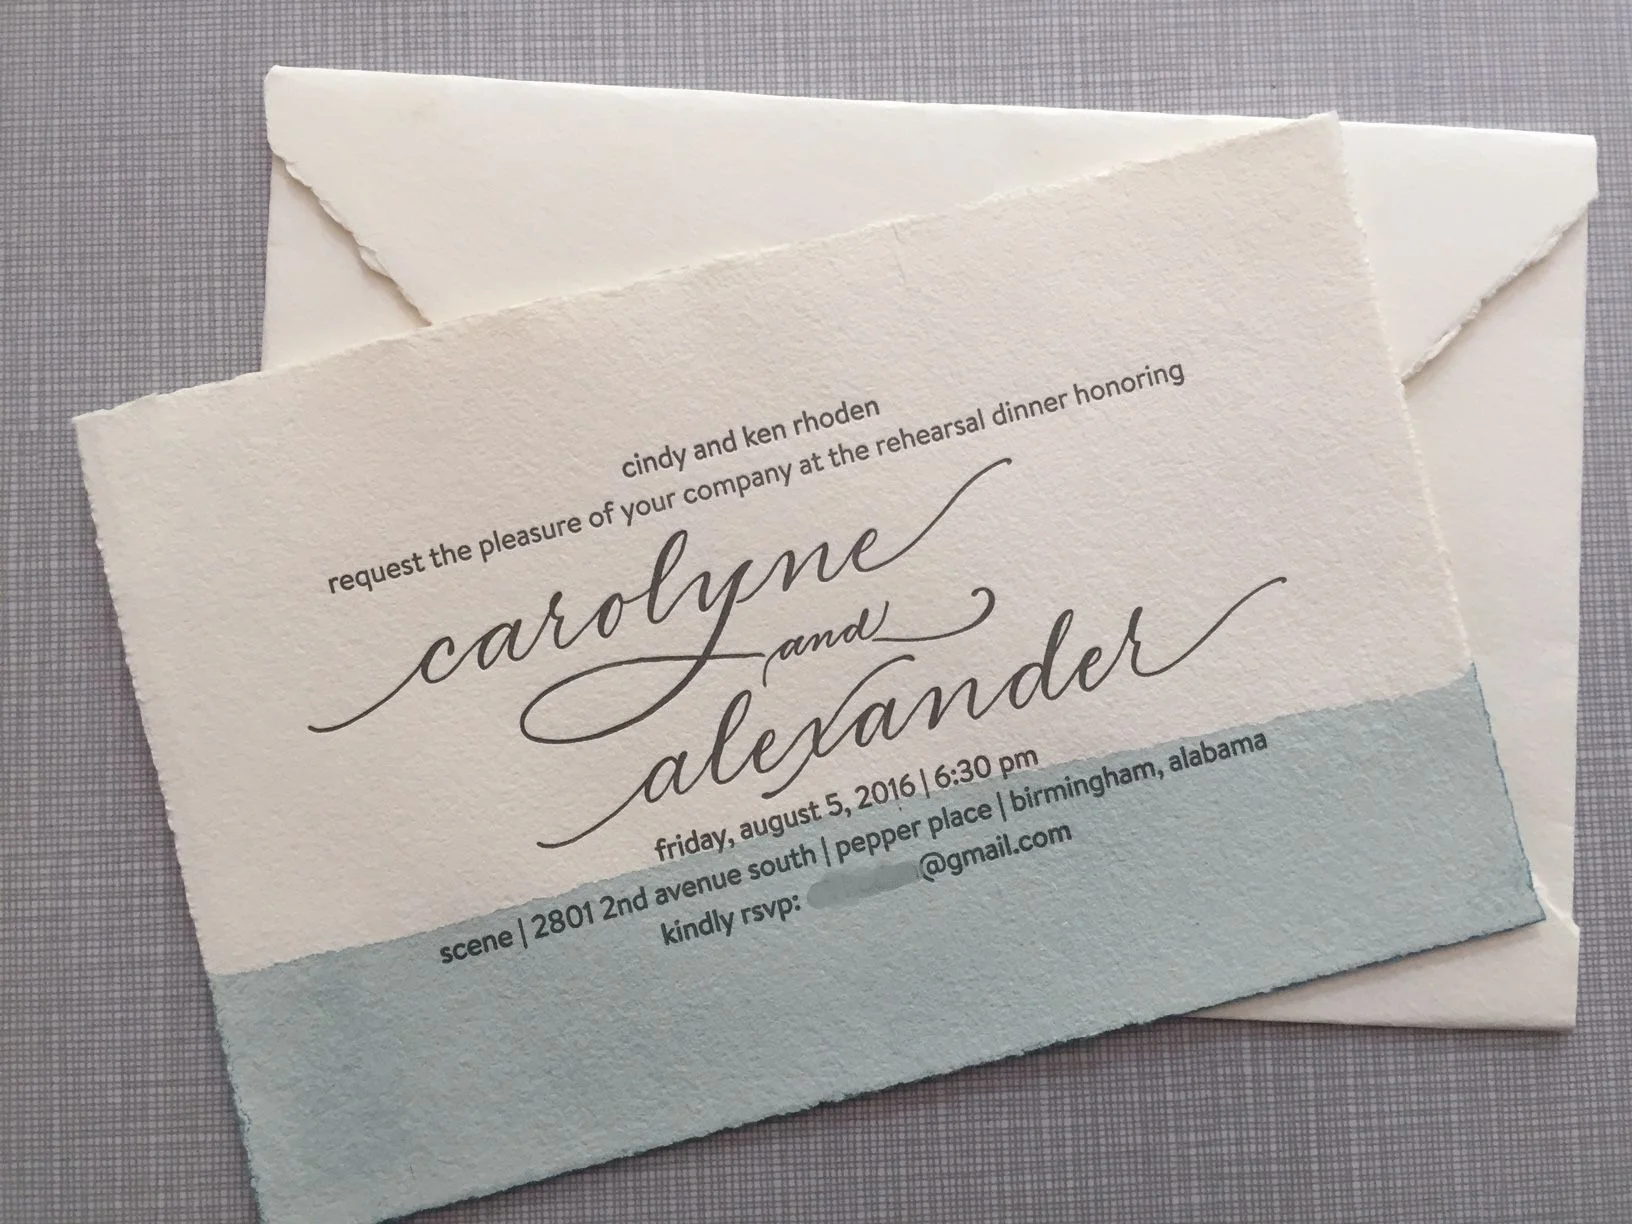 cindy and ken rhoden
request the pleasure of your company at the rehearsal dinner honoring
carolyne
and
alexander
friday, august 5, 2016 | 6:30 pm
scene | 2801 2nd avenue south | pepper place | birmingham, alabama
kindly rsvp: @gmail.com